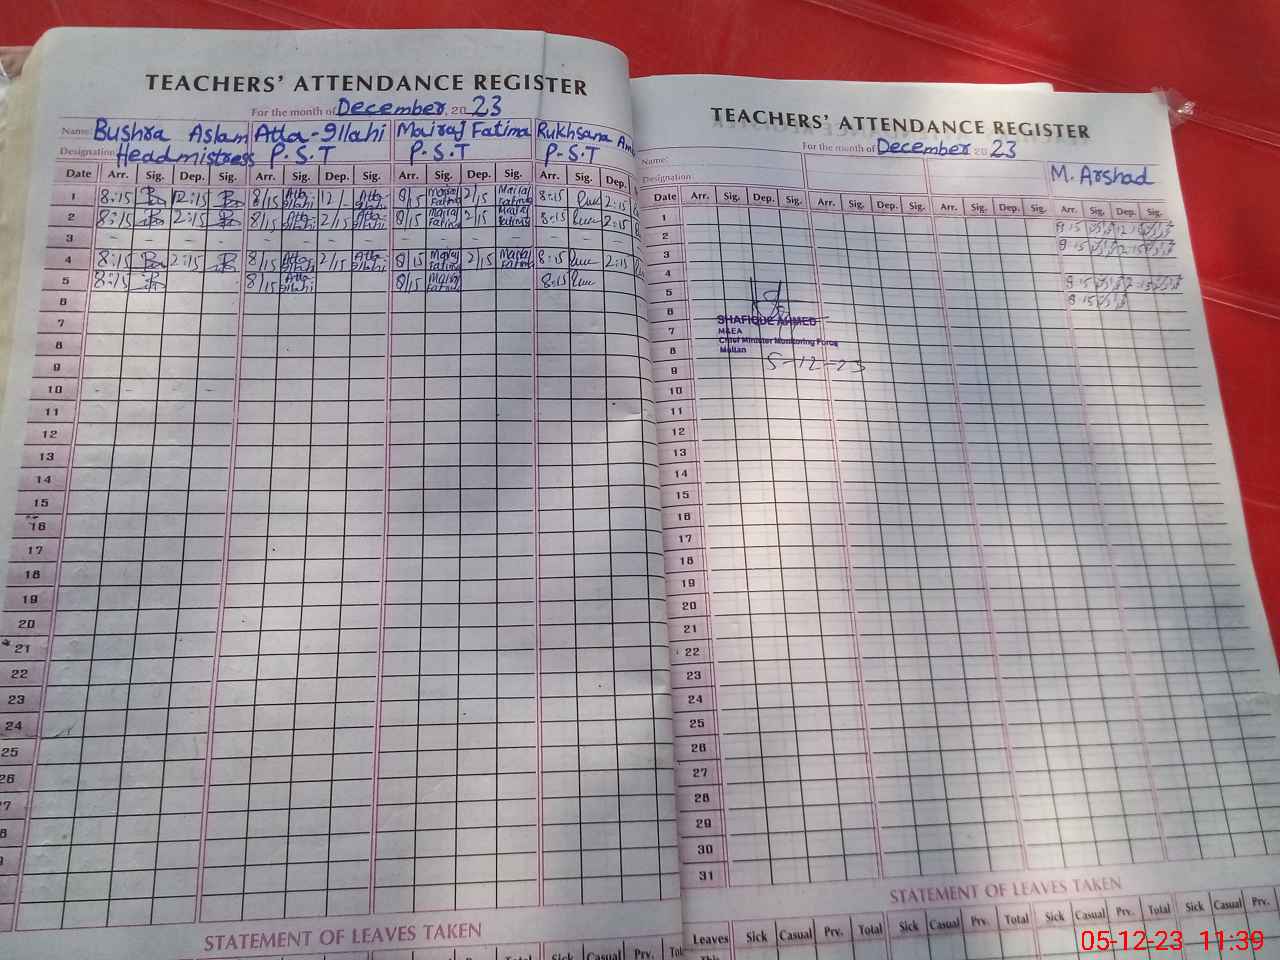 TEACHERS' ATTENDANCE REGISTER
For the month of December 2023
Name: Bushra Aslam Atta-Illahi Mairaj Fatima Rukhsana
Designation Headmistress P.S.T P.S.T P.S.T
Date Arr. Sig. Dep. Sig. Arr. Sig. Dep. Sig. Arr. Sig. Dep. Sig. Arr. Sig. Dep.
1 8:15 12:15 8/15 Atta-Illahi 12/ 8/15 Mairaj Fatima Mairaj Fatima 8:15
2 8:15 2:15 8/15 Atta-Illahi 2/15 Atta-Illahi 8/15 Mairaj Fatima 2/15 Mairaj Fatima 8:15 2:15
3 - - - - - - - - - - - - - - -
4 8:15 2:15 8/15 Atta-Illahi 2/15 Atta-Illahi 8/15 Mairaj Fatima 2/15 Mairaj Fatima 8:15 2:15
5 8:15 8/15 Atta-Illahi 8/15 Mairaj Fatima 8:15
6
7
8
9
10 - - - -
11
12
13
14
15
16
17
18
19
20
21
22
23
24
25
26
STATEMENT OF LEAVES TAKEN
Sick Casual Prv.
TEACHERS' ATTENDANCE REGISTER
For the month of December 2023
Name:
Designation: M. Arshad
Date Arr. Sig. Dep. Sig. Arr. Sig. Dep. Sig. Arr. Sig. Dep. Sig. Arr. Sig. Dep. Sig.
1 8:15
2 8:15
3
4 8:15
5 8:15
6
7
8
9
10
11
12
13
14
15
16
17
18
19
20
21
22
23
24
25
26
27
28
29
30
31
SHAFIQUE AHMED
MAEA
Chief Minister Monitoring Force
Multan
5-12-23
STATEMENT OF LEAVES TAKEN
Leaves Sick Casual Prv. Total Sick Casual Prv. Total Sick Casual Prv. Total Sick Casual Prv.
05-12-23 11:39